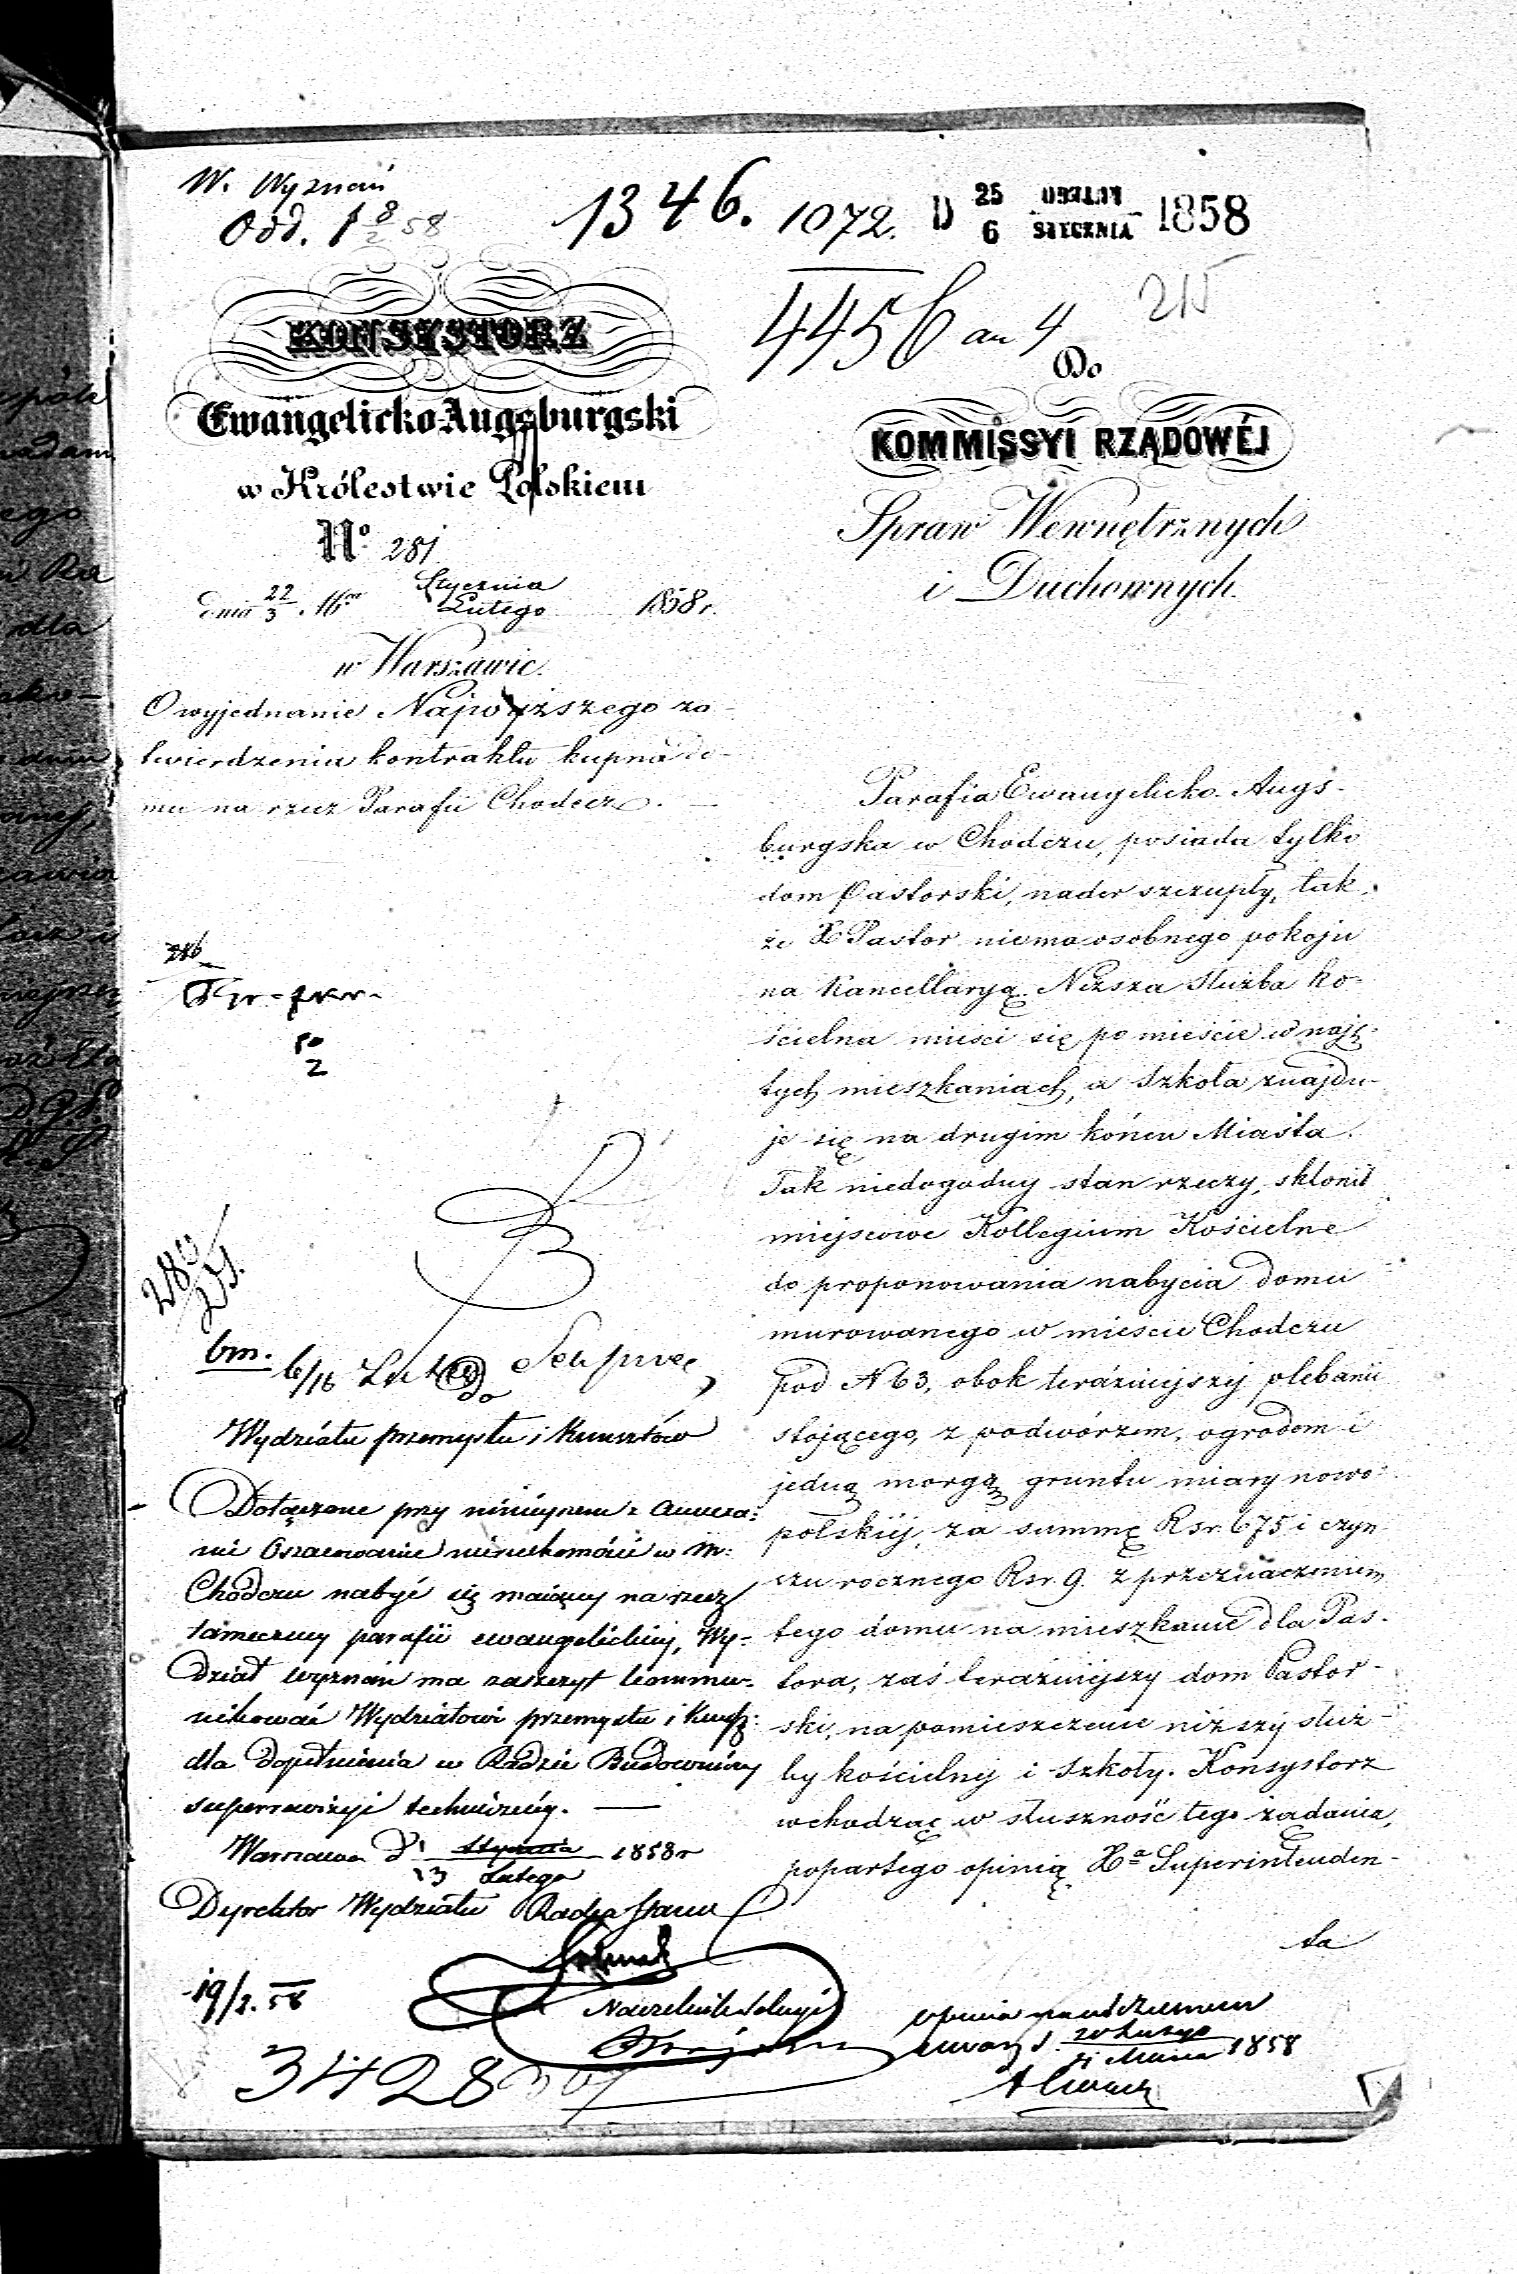 W. Wyznań
Odd. 1 8/2 58
1346. 1072. D 25 LUTEGO
6 STYCZNIA 1858
215
4456 an 4
KONSYSTORZ
Ewangelicko Augsburgski
w Królestwie Polskiem
No. 281
dnia 22/3 Stycznia
Lutego 1858 r.
w Warszawie.
O wyjednanie Najwyższego za-
twierdzenia kontraktu kupna do-
mu na rzecz Parafii Chodecz. —
Do
KOMMISSYI RZĄDOWÉJ
Spraw Wewnętrznych
i Duchownych.
Parafia Ewangelicko-Augs-
burgska w Chodczu, posiada tylko
dom Pastorski, nader szczupły, tak,
że X. Pastor niema osobnego pokoju
na Kancellaryą. Niższa służba ko-
ścielna mieści się po mieście w naję-
tych mieszkaniach, a szkoła znajdu-
je się na drugim końcu Miasta.
Tak niedogodny stan rzeczy, skłonił
miejscowe Kollegium Kościelne
do proponowania nabycia domu
murowanego w mieście Chodczu
pod N 63, obok teraźniejszej plebanii
stojącego, z podwórzem, ogrodem i
jedną morgą gruntu miary nowo-
polskiéj, za summę Rsr. 675 i czyn-
szu rocznego Rsr. 9. z przeznaczeniem
tego domu na mieszkanie dla Pas-
tora, zaś teraźniejszy dom Pastor-
ski, na pomieszczenie niższéj służ-
by kościelnej i szkoły. Konsystorz
wchodząc w słuszność tego żądania,
popartego opinią Xa Superintenden-
ta
280
bm. 6/18
do
Wydziału przemysłu i Kunsztów
Dołączone przy niniejszem z
nie Oszacowanie nieruchomości w m:
Chodczu nabyć się mającej na rzecz
tamecznej parafii ewangelickiej, Wy-
dział wyznań ma zaszczyt kommu-
nikować Wydziałowi przemysłu i Kunsz:
dla dopełnienia w Radzie Budowniczej
superrewizyi technicznéj. —
Warszawa d. Stycznia
13 Lutego 1858 r
Dyrektor Wydziału Radca Stanu
Naczelnik Sekcyi
19/2. 58
3428
1858